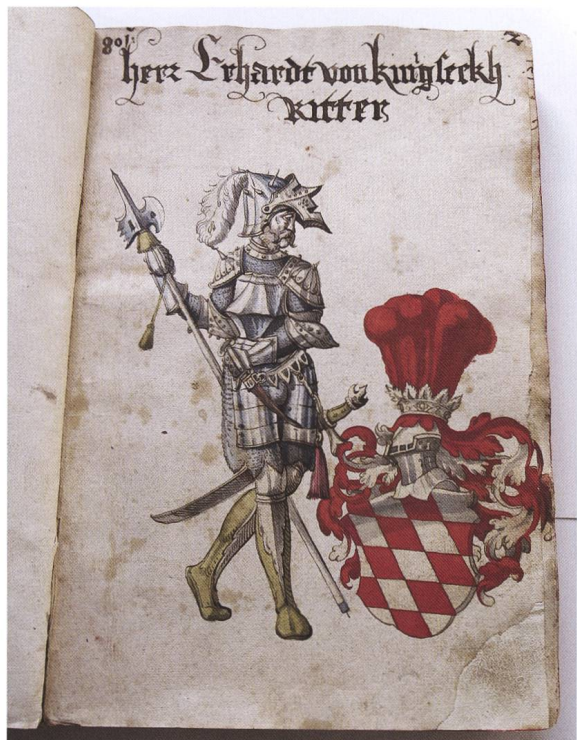 801:
2
herr Erhardt von kinigseckh
Ritter